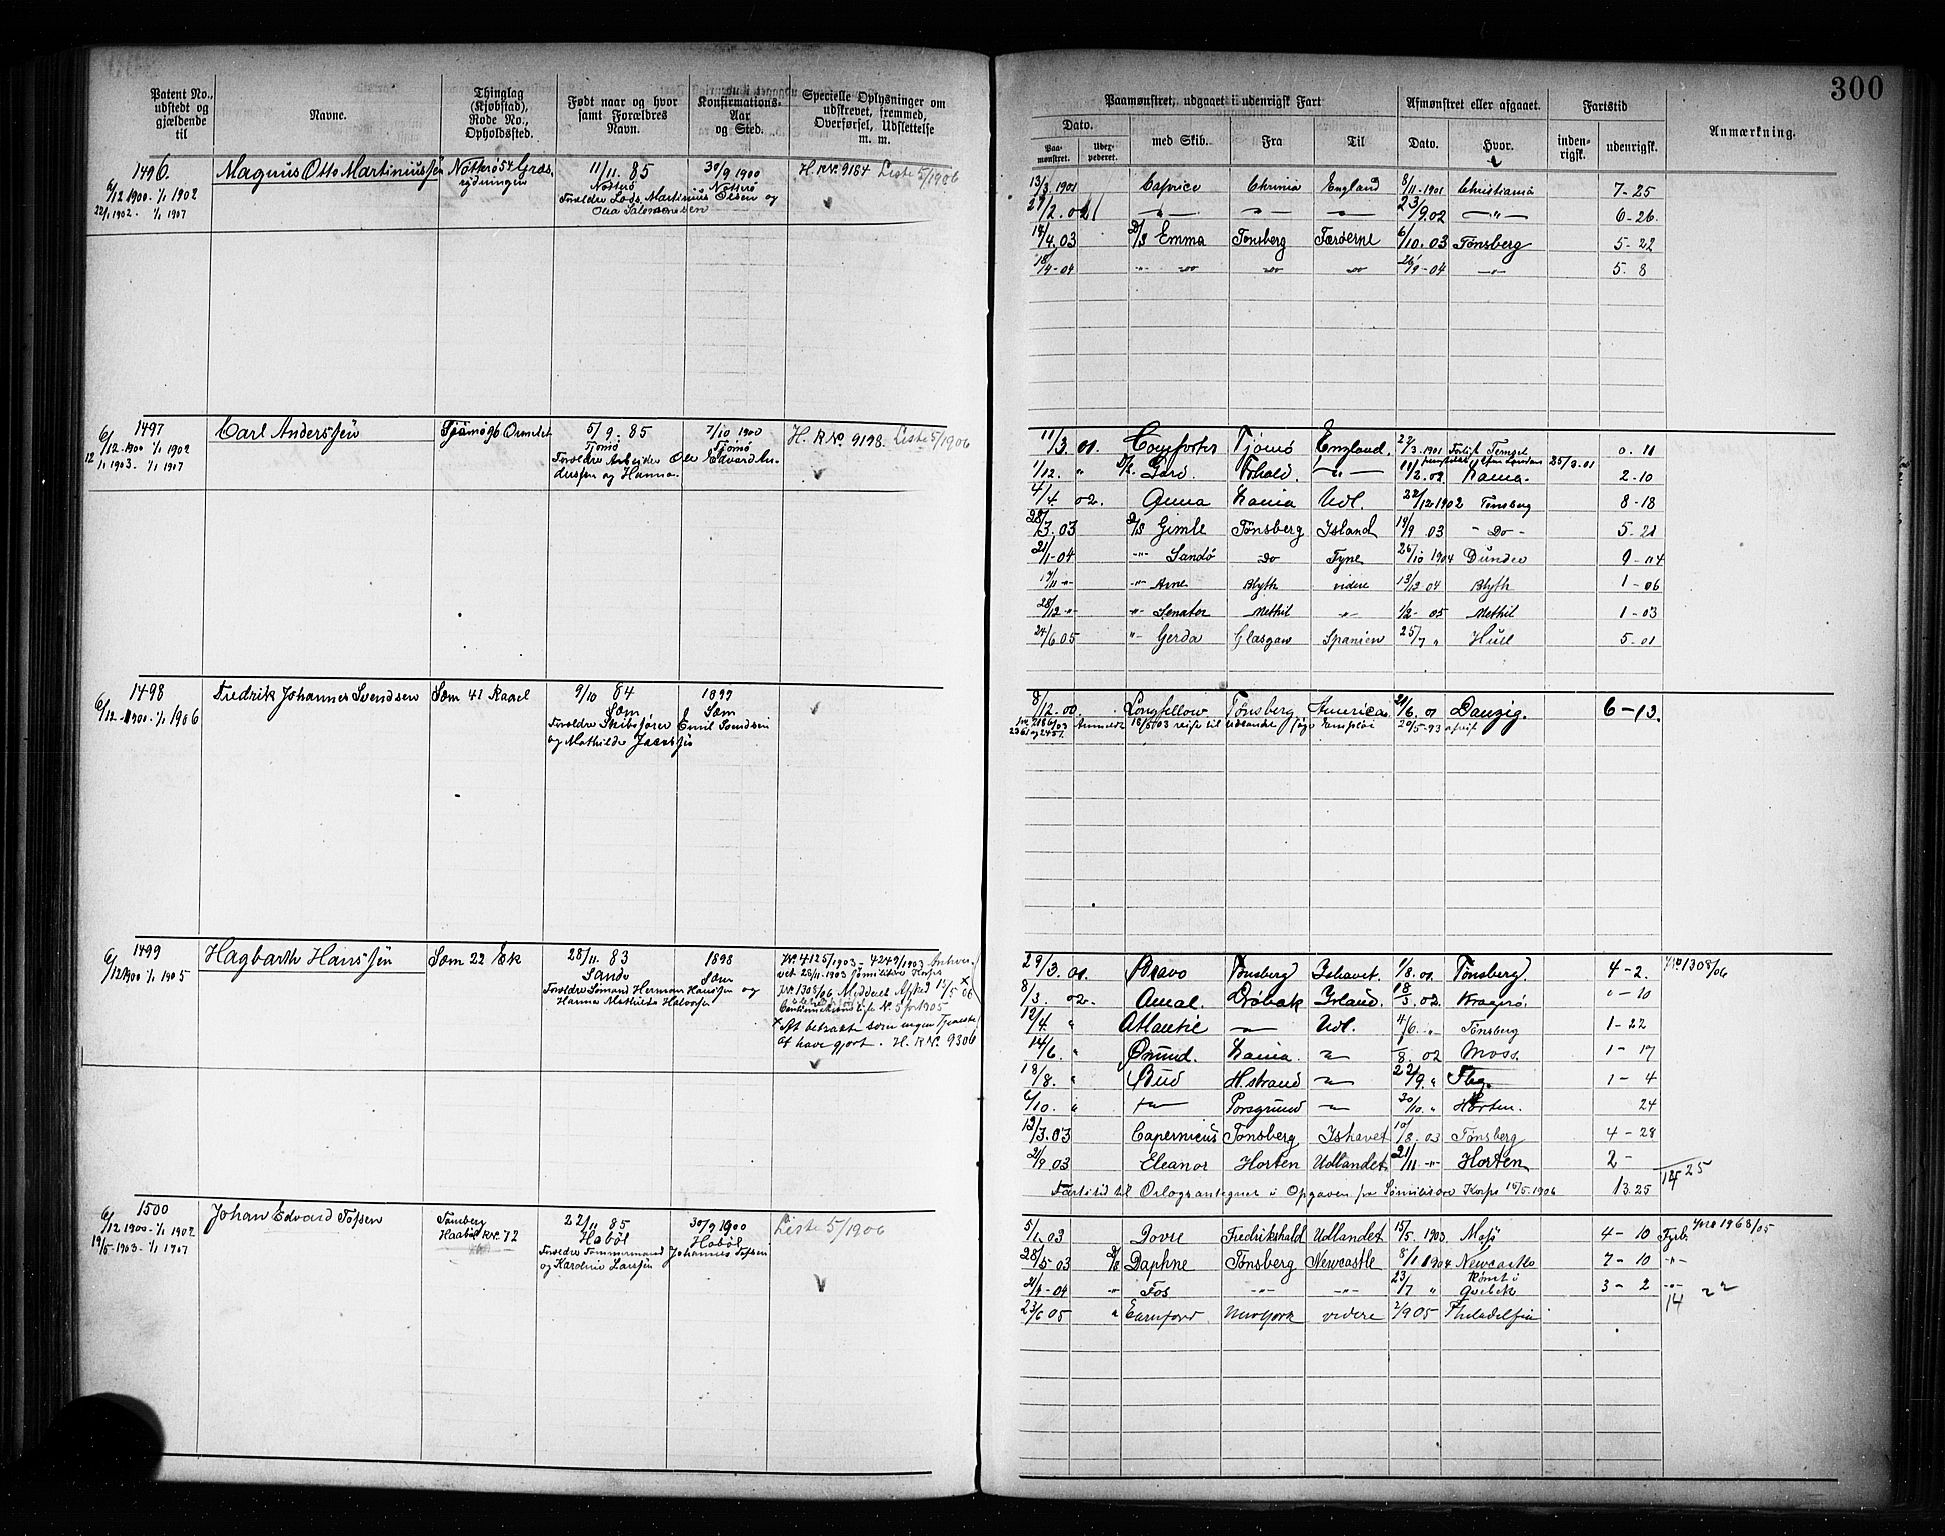 300
Patent No., udstedt og gjældende til
Navne.
Thinglag (Kjøbstad), Rode No., Opholdssted.
Født naar og hvor samt Forældres Navn.
Konfirmations-Aar og Sted.
Specielle Oplysninger om udskrevet, fremmed, Overførsel, Udslettelse m. m.
Paamønstret, udgaaet i udenrigsk Fart
Afmønstret eller afgaaet.
Fartstid
Anmærkning.
Dato.
Paamønstret.
med Skib.
Fra
Til
Dato.
Hvor.
indenrigsk.
udenrigsk.
1496.
6/12 1900 - 1/1 1902
22/1 1902. - 1/1 1907
Magnus Otto Martiniussen
Nøtterø 54
11/11. 85
Nøtterø
Forældre Lods Martinius Olsen og
Olea Salomonsen
30/9 1900
Nøtterø
H. R No. 9184 Liste 5/1906
13/3 1901 Caprice Chrinia England 8/11-1901 Christiania 7-25
2.02 —"— —"— —"— 23/9.02 —"— 6-26
14/4.03 D/S Emma Tønsberg Færøerne 6/10.03 Tønsberg 5-22
18/4-04 " " " " 26/9-04 —"— 5. 8
1497
6/12-1900 1/1 1902
12/1 1903. - 1/1 1907
Carl Anderssen
Tjømø 96 Ormelet
5/9. 85
Tjømø
Forældre Arbeider Ole Edvard An-
derssen og Hanna
7/10 1900
Tjømø
H. R No. 9198. Liste 5/1906
11/3. 01. Tjømø England. 1901 0. 11
1/12. " D/S Gard. —"— 11/2.02 2-10
4/4. 02. Anna Udl. 22/12 1902 Tønsberg 8-18
28/3.03 D/S Gimle Tønsberg Island 19/9 03 -Do- 5-21
21/1-04 -"- Sandø Do Tyne 26/10 1904 Dundee 9-04
17/11 -"- -"- Arne Blyth videre 13/12 04 Blyth 1-06
28/12 -"- -"- Senator Methil " 1/2- 05 Methil 1-03
24/6.05 "- Gerda Glasgow Spanien 25/7 " Hull 5-01
1498
6/12-1900. - 1/1 1906
Fredrik Johannes Svendsen
Sæm 41 Raael
9/10 84
Sæm
Forældre Skibsfører Emil Svendsen
og Mathilde
1899
Sæm
8/12-00. Longfellow Tønsberg America 21/6. 01 Danzig. 6-13.
1499
6/12 1900 1/1 1905
Hagbarth Hanssen
Sæm 22 Eek
28/11. 83
Sande
Forældre Sømand Herman Hanssen og
Hanna Mathilde Halvorsen
1898
Sæm
No. 4125/1903 - 4249/1903
28/11-1903 Sømilitære Korps
No. 1308/06 Meddelt Afsked 12/5 06
Liste No. 5 for 1905
At betragte som ingen Tjeneste
at have gjort. H. R No. 9306
29/3. 01. Bravo Tønsberg Ishavet 1/8. 01. Tønsberg. 4-2. No 1308/06
8/3. 02. Amal. Drøbak Irland. 18/5.02. Kragerø. "-10
12/4 " Atlantic —"— Udl. 4/6. " Tønsberg 1-22
14/6. " Ørnund. —"— 8. 02 Moss. 1-17
18/8. " Bud Hstrand —"— 22/9. " Tbg. 1-4
6/10. " —"— Porsgrund —"— 30/10. " Horten. 24
12/3.03 Copernicus Tønsberg Ishavet 10/8. 03 Tønsberg 4-28
2/9 03 Eleanor Horten Udlandet 21/11 -"- Horten 2-
14 25
Fartstid til Orlogs Opgaven fra Sømilitære Korps 15/5. 1906 13.25
1500
6/12 1900 - 1/1 1902
19/5-1903 - 1/1 1907
Johan Edvard Tofsen
Tønsberg
R No. 72
22/11 85
Hobøl
Forældre Tømmermand Johannes Tofsen
og Kardine Larssen
30/9 1900
Hobøl
Liste 5/1906
5/1.03 Dovre Fredrikshald Udlandet 15/5. 1903. Mosjø 4-10 No 1968/05
28/5-03 D/S Daphne Tønsberg Newcastle 8/1 1904 Newcastle 7-10 -"-
21/4-04 " Fos -"- -"- 23/7 " Rømt i Qvebek 3-2 -"-
14 22
23/6 05 " Newyork videre 2/9 05 Philadelfia